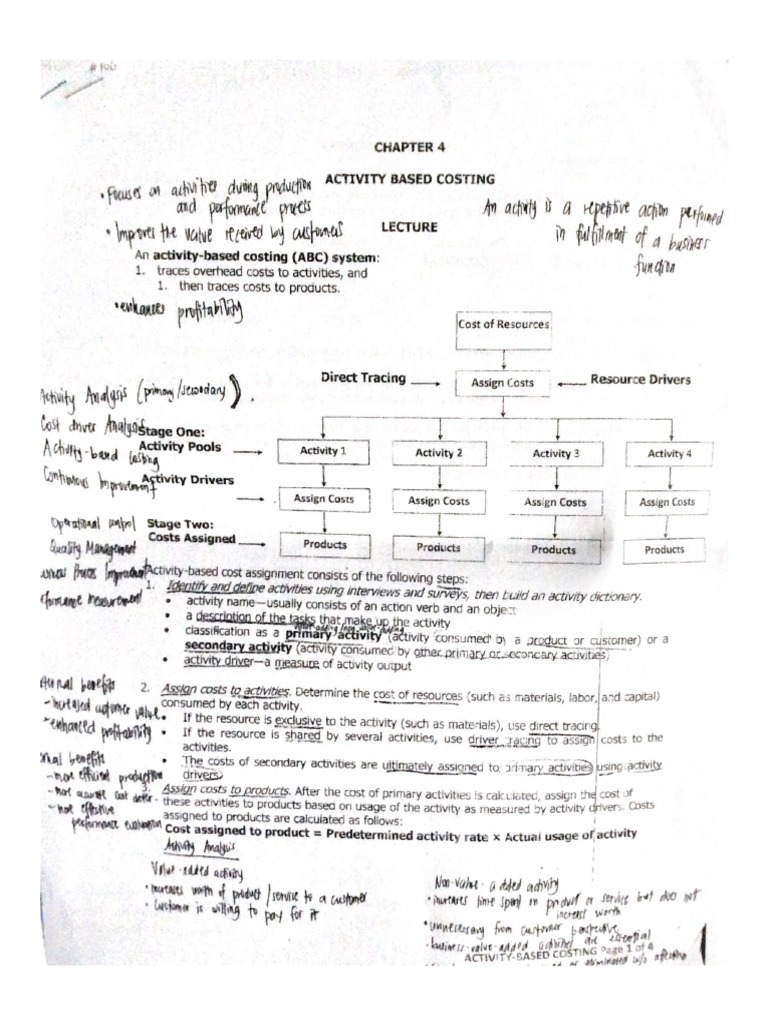 CHAPTER 4
ACTIVITY BASED COSTING
• Focuses on activities during production
and performance process
• Improves the value received by customers
LECTURE
An activity is a repetitive action performed
in fulfillment of a business
function
An activity-based costing (ABC) system:
1. traces overhead costs to activities, and
1. then traces costs to products.
• enhances profitability
Cost of Resources
Direct Tracing
Assign Costs
Resource Drivers
Activity Analysis (primary/secondary)
Cost driver Analysis
Activity-based costing
Continuous Improvement
Stage One:
Activity Pools
Activity 1
Activity 2
Activity 3
Activity 4
Activity Drivers
Assign Costs
Assign Costs
Assign Costs
Assign Costs
Operational control
Quality Management
Stage Two:
Costs Assigned
Products
Products
Products
Products
Process Improvement
measurement
Activity-based cost assignment consists of the following steps:
1. Identify and define activities using interviews and surveys, then build an activity dictionary.
• activity name—usually consists of an action verb and an object
• a description of the tasks that make up the activity
value-adding/non-value-adding
• classification as a primary activity (activity consumed by a product or customer) or a
secondary activity (activity consumed by other primary or secondary activities)
• activity driver—a measure of activity output
benefits
- increased customer value
- enhanced profitability
2. Assign costs to activities. Determine the cost of resources (such as materials, labor, and capital)
consumed by each activity.
• If the resource is exclusive to the activity (such as materials), use direct tracing.
• If the resource is shared by several activities, use driver tracing to assign costs to the
activities.
• The costs of secondary activities are ultimately assigned to primary activities using activity
drivers.
benefits
- more efficient production
- more accurate cost
- more effective
performance evaluation
3. Assign costs to products. After the cost of primary activities is calculated, assign the cost of
these activities to products based on usage of the activity as measured by activity drivers. Costs
assigned to products are calculated as follows:
Cost assigned to product = Predetermined activity rate × Actual usage of activity
Activity Analysis
Value-added activity
• increases worth of product/service to a customer
• customer is willing to pay for it
Non-value-added activity
• increases time spent on product or service but does not
increase worth
• unnecessary from customer perspective
• business-value-added activities are essential
ACTIVITY-BASED COSTING Page 1 of 4